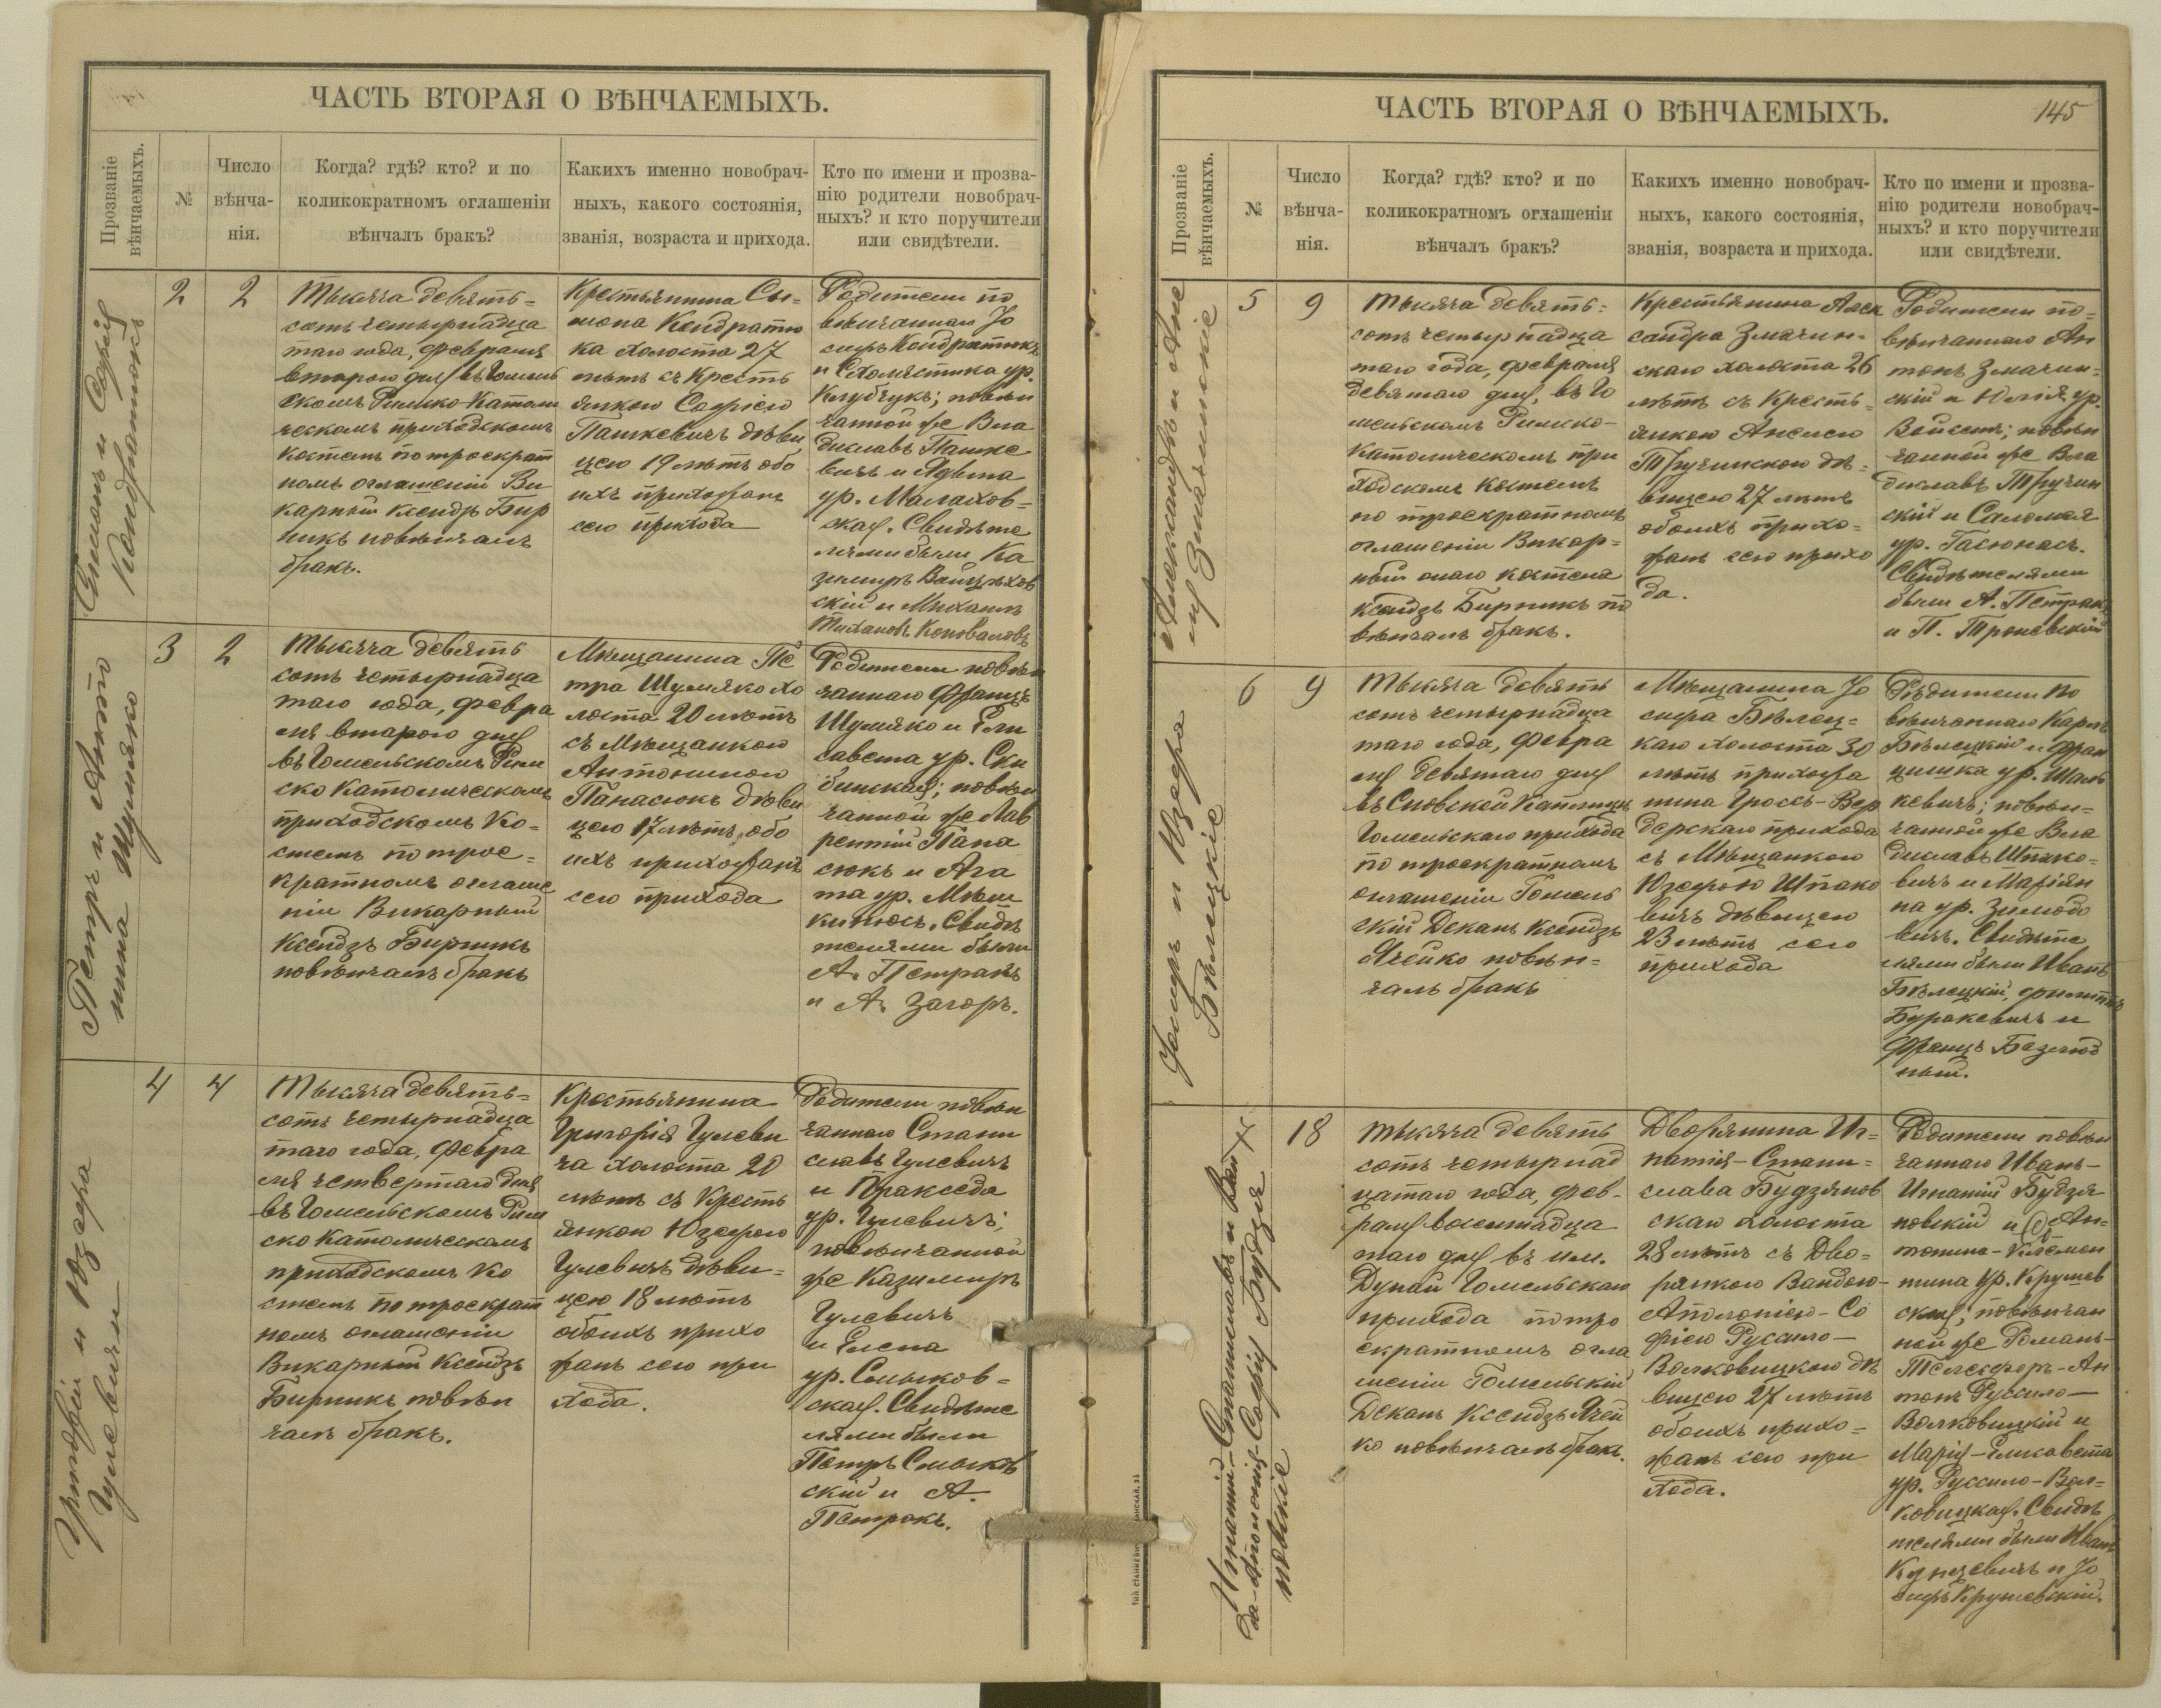 ЧАСТЬ ВТОРАЯ О ВѢНЧАЕМЫХЪ.
Прозваніе
вѣнчаемыхъ.
№
Число
вѣнча-
нія.
Когда? гдѣ? кто? и по
коликократномъ оглашеніи
вѣнчалъ бракъ?
Какихъ именно новобрач-
ныхъ, какого состоянія,
званія, возраста и прихода.
Кто по имени и прозва-
нію родители новобрач-
ныхъ? и кто поручители
или свидѣтели.
Симонъ и Софія
Кондратюкъ
2
2
Тысяча девять=
сотъ четырнадца
таго года, февраля
второго дня въ Гомель
скомъ Римско-Католи
ческомъ приходскомъ
костелѣ по троекрат
номъ оглашеніи Ви
карный ксендзъ Бир
никъ повѣнчалъ
бракъ.
Крестьянина Си-
мона Кондратю
ка холоста 27
лѣтъ съ Кресть
янкою Софіею
Пашкевичъ дѣви
цею 19 лѣтъ обо
ихъ прихожанъ
сего прихода
Родители по
вѣнчаннаго Іо
сифъ Кондратюкъ
и Схоластика ур.
Клубчукъ; повѣн
чанной же Вла
диславъ Пашке
вичъ и Ядвига
ур. Малахов=
ская. Свидѣте
лями были Ка
зимиръ Войцѣхов
скій и Михаилъ
Тихановъ Коноваловъ
Петръ и Анто
нина Шумяко
3
2
Тысяча девять
сотъ четырнадца
таго года, февра
ля второго дня
въ Гомельскомъ Рим
ско Католическомъ
приходскомъ Ко-
стелѣ по трое=
кратномъ оглаше
ніи Викарный
Ксендзъ Бирникъ
повѣнчалъ бракъ
Мѣщанина Пе
тра Шумяко хо
лоста 20 лѣтъ
съ Мѣщанкою
Антониною
Панасюкъ дѣви
цею 17 лѣтъ, обо
ихъ прихожанъ
сего прихода
Родители повѣн
чаннаго Францъ
Шумяко и Ели
савета ур. Ски
бинская; повѣн
чанной же Лав
рентій Пана
сюкъ и Ага
та ур.
Свидѣ
телями были
А. Петракъ
и А. Загоръ.
Григорій и Юзефа
Гулевичи
4
4
Тысяча девять=
сотъ четырнадца
таго года, февра
ля четвертаго дня
въ Гомельскомъ Рим
ско Католическомъ
приходскомъ Ко
стелѣ по троекрат
номъ оглашеніи
Викарный Ксендзъ
Бирникъ повѣн
чалъ бракъ.
Крестьянина
Григорія Гулеви
ча холоста 20
лѣтъ съ Кресть
янкою Юзефою
Гулевичъ дѣви=
цею 18 лѣтъ
обоихъ прихо
жанъ сего при
хода.
Родители повѣн
чаннаго Стани
славъ Гулевичъ
и Пракседа
ур. Гулевичъ;
повѣнчанной
же Казимиръ
Гулевичъ
и Елена
ур. Смыков=
ская. Свидѣте
лями были
Петръ Смыков
скій и А.
Петракъ.
ЧАСТЬ ВТОРАЯ О ВѢНЧАЕМЫХЪ.
145
Прозваніе
вѣнчаемыхъ.
№
Число
вѣнча-
нія.
Когда? гдѣ? кто? и по
коликократномъ оглашеніи
вѣнчалъ бракъ?
Какихъ именно новобрач-
ныхъ, какого состоянія,
званія, возраста и прихода.
Кто по имени и прозва-
нію родители новобрач-
ныхъ? и кто поручители
или свидѣтели.
Александръ и Анеля
Змачинскіе
5
9
Тысяча девять=
сотъ четырнадца
таго года, февраля
девятаго дня, въ Го
мельскомъ Римско-
Католическомъ при
ходскомъ Костелѣ
по троекратномъ
оглашеніи Викар=
ный онаго костела
Ксендзъ Бирникъ по
вѣнчалъ бракъ.
Крестьянина Алек
сандра Змачин-
скаго холоста 26
лѣтъ съ Кресть-
янкою Анелею
Тручинскою дѣ=
вицею 27 лѣтъ
обоихъ прихо=
жанъ сего прихо
да.
Родители по=
вѣнчаннаго Ан
тонъ Змачин=
скій и Юлія ур.
повѣн
чанной же Вла
диславъ Тручин
скій и Саломея
ур.
Свидѣтелями
были А. Петракъ
и П.
Іосифъ и Юзефа
Бѣлецкіе
6
9
Тысяча девять
сотъ четырнадца
таго года, февра
ля девятаго дня
въ Сновской Каплицѣ
Гомельскаго прихода
по троекратномъ
оглашеніи Гомель
скій Деканъ Ксендзъ
Ячейко повѣн=
чалъ бракъ
Мѣщанина Іо
сифа Бѣлец=
каго холоста 30
лѣтъ прихожа
нина
прихода
съ Мѣщанкою
Юзефою Шпако
вичъ дѣвицею
23 лѣтъ сего
прихода
Родители по
вѣнчаннаго Карлъ
Бѣлецкій и Фран
цишка ур.
повѣн-
чанной же Вла
диславъ Шпако-
вичъ и Маріан
на ур.
Свидѣте
лями были Иванъ
Бѣлецкій, Филиппъ
Буракевичъ и
Францъ Безлюд
ный.
Игнатій-Станиславъ и Ван
да-Аполонія-Софія Будзя
новскіе
7
18
Тысяча девять
сотъ четырнад
цатаго года, фев-
раля восемнадца
таго дня въ им.
Дунай Гомельскаго
прихода по тро
екратномъ огла
шеніи Гомельскій
Деканъ Ксендзъ Ячей
ко повѣнчалъ бракъ.
Дворянина Иг=
натія-Стани=
слава Будзянов
скаго холоста
28 лѣтъ съ Дво=
рянкою Вандою-
Аполоніею-Со
фіею Руссило-
Волковицкою дѣ
вицею 27 лѣтъ
обоихъ прихо=
жанъ сего при
хода.
Родители повѣн
чаннаго Иванъ-
Игнатій Будзя
новскій и Ан=
тонина-Клемен
тина ур. Крушев
ская; повѣнчан
ной же Романъ-
Телесфоръ-Ан
тонъ Руссило-
Волковицкій и
Марія-Елисавета
ур. Руссило-Вол-
ковицкая. Свидѣ
телями были Иванъ
Кунцевичъ и Іо
сифъ Крушевскій.